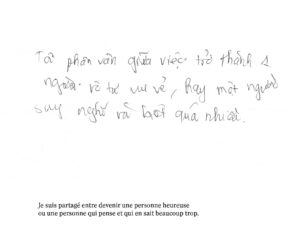 Tôi phân vân giữa việc trở thành 1
người vô tư vui vẻ, hay một người
suy nghĩ và biết quá nhiều.
Je suis partagé entre devenir une personne heureuse
ou une personne qui pense et qui en sait beaucoup trop.